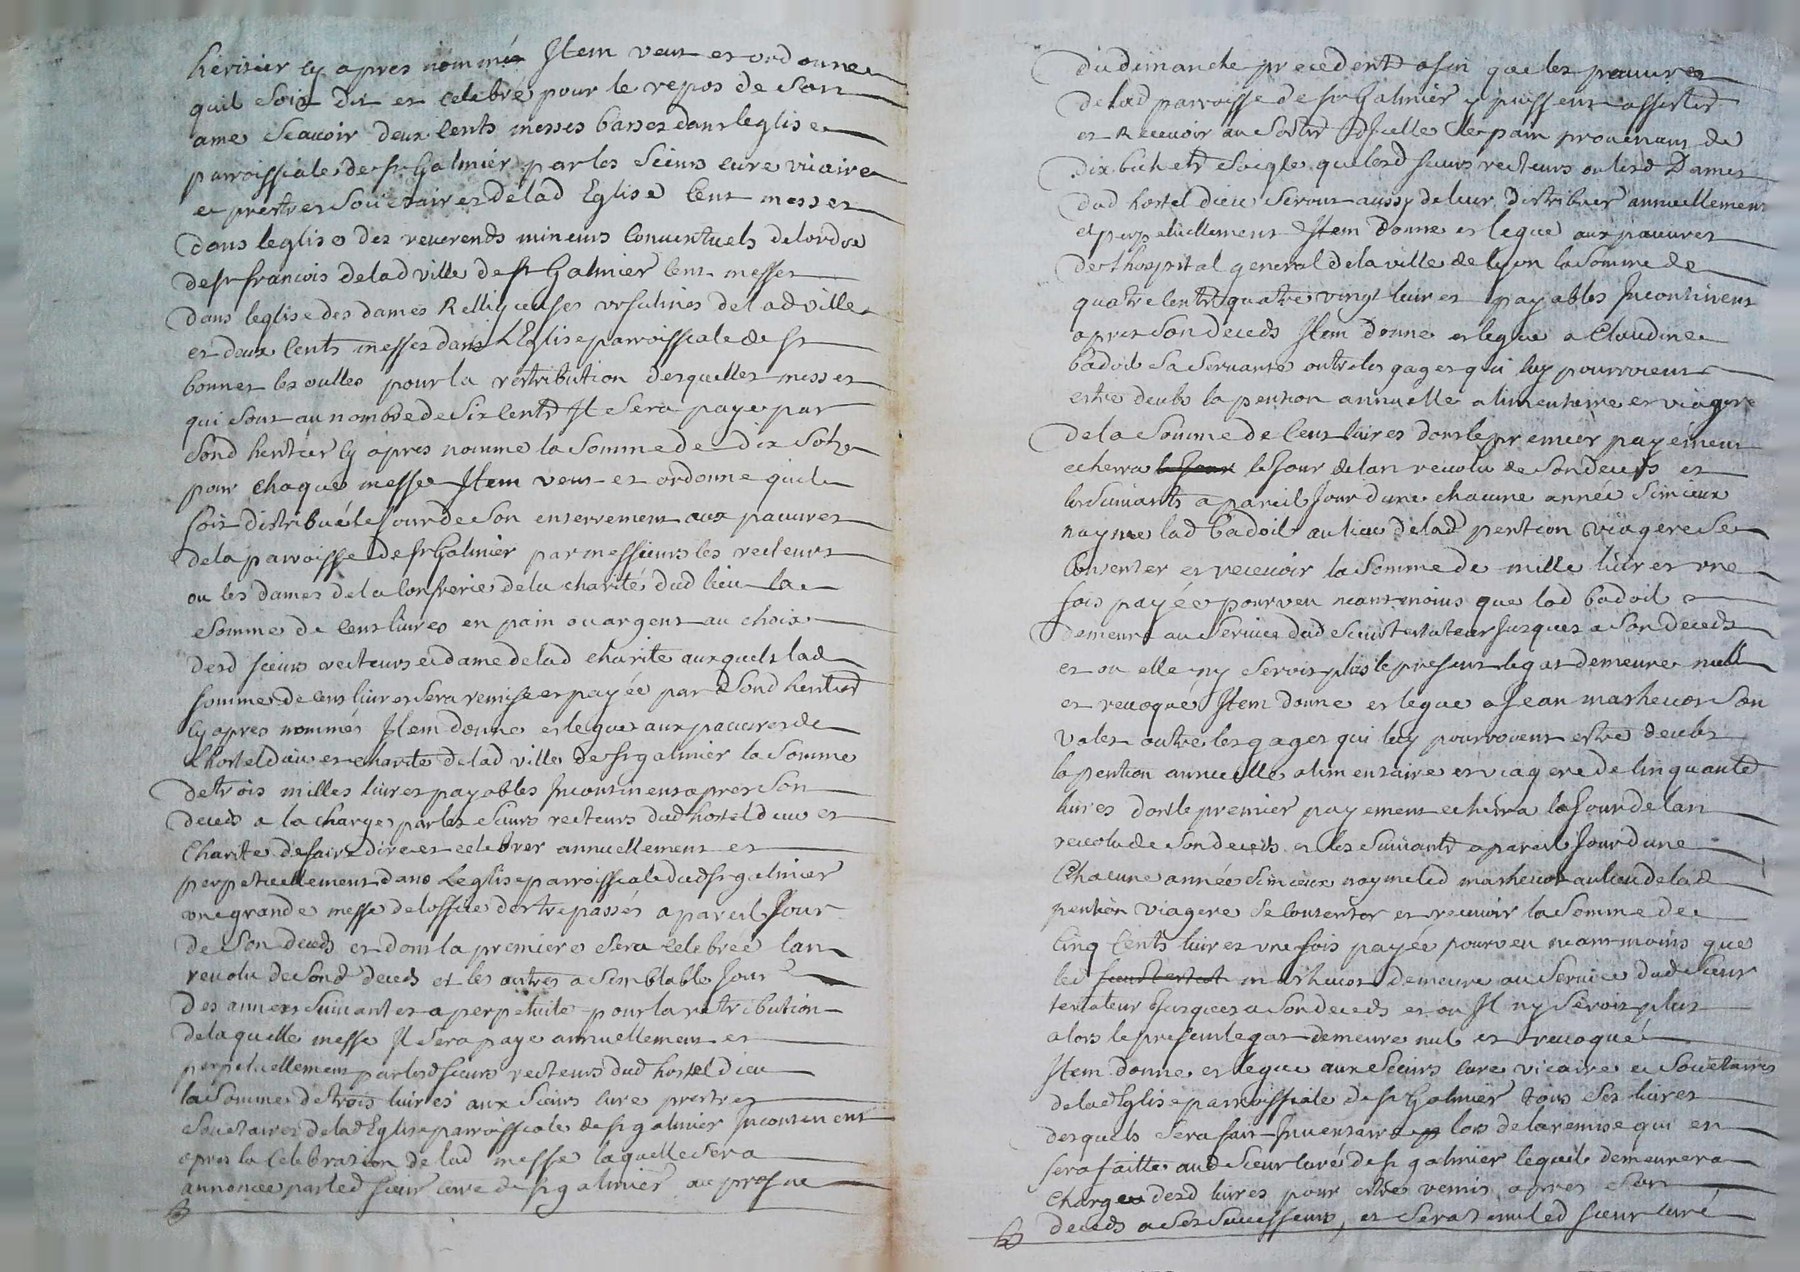 heritier cy apres nommé Item veut et ordonne
quil soit dit et celebré pour le repos de son
ame scavoir deux cents messes basses dans leglise
parroissiale de st Galmier par les sieurs curé vicaire
et prestres societaires de lad Eglise cent messes
dans leglise des reverends mineurs conventuels de lordre
de st francois de lad ville de st Galmier cent messes
dans leglise des dames Relligieuses ursulines de lad ville
et deux cents messes dans L'Eglise parroissiale de st
bonnet les oulles pour la retribution desquelles messes
qui sont au nombre de six cents Il sera payé par
sond heritier cy apres nommé la somme de dix sols
pour chaque messe Item veut et ordonne quil
soit distribué le jour de son enterrement aux pauvres
de la parroisse de st Galmier par messieurs les recteurs
ou les dames de la confrerie de la charité dud lieu la
somme de cent livres en pain ou argent au choix
desd sieurs recteurs et dame de lad charité auxquels lad
somme de cent livres sera remise et payée par sond heritier
cy apres nommé Item donne et legue aux pauvres de
Lhostel dieu et charité de lad ville de st galmier la somme
de trois milles livres payables Incontinent apres son
deceds a la charge par les sieurs recteurs dud hostel dieu et
charité de faire dire et celebrer annuellement et
perpetuellement dans Leglise parroissiale dud st galmier
une grande messe de loffice des trepassés a pareil Jour
de son deceds et dont la premiere sera celebrée lan
revolu de sond deceds et les autres a semblable Jour
des annees suivantes a perpetuité pour la retribution
de laquelle messe Il sera payé annuellement et
perpetuellement par lesd sieurs recteurs dud hostel dieu
la somme de trois livres aux sieurs curé prestres
societaires de lad Eglise parroissiale de st galmier Incontinent
apres la celebration de lad messe laquelle sera
annoncee par led sieur curé de st galmier au prosne
du dimanche precedent afin que les pauvres
de lad parroisse de st Galmier y puissent assister
et Recevoir au sortir dicelle le pain provenant de
dix bichets seigle que lesd sieurs recteurs ou lesd Dames
dud hostel dieu seront aussy de leur distribuer annuellement
et perpetuellement Item donne et legue aux pauvres
de Lhospital general de la ville de lyon la somme de
quatre cents quatre vingt livres payables Incontinent
apres son deceds Item donne et legue a Claudine
badoil sa servante outre les gages qui luy pourroient
estre deubs la pention annuelle alimentaire et viagere
de la somme de cent livres dont le premier payement
echerra le Jour de lan revolu de son deceds et
les suivants a pareil Jour dune chacune année si mieux
nayme lad badoil au lieu de lad pention viagere se
contenter et recevoir la somme de mille livres une
fois payée pourveu neantmoins que lad badoil
demeure au service dud sieur testateur Jusques a son deceds
et ou elle ny seroit plus le present legat demeure null
et revoqué Item donne et legue a Jean mathevot son
valet outre les gages qui luy pourroient estre deubs
la pention annuelle alimentaire et viagere de cinquante
livres dont le premier payement echerra le Jour de lan
revolu de son deceds et les suivants a pareil Jour dune
chacune année si mieux nayme led mathevot au lieu de lad
pention viagere se contenter et recevoir la somme de
cinq cents livres une fois payée pourveu neantmoins que
led mathevot demeure au service dud sieur
testateur Jusques a son deceds et ou Il ny seroit plus
alors le present legat demeure nul et revoqué
Item donne et legue aux sieurs curé vicaire et societaires
de lad Eglise parroissiale de st Galmier tous ses livres
desquels sera fait Inventaire lors de la remise qui en
sera faitte aud sieur curé de st galmier lequel demeurera
chargé desd livres pour estre remis apres son
deceds a ses successeurs, et sera tenu led sieur curé